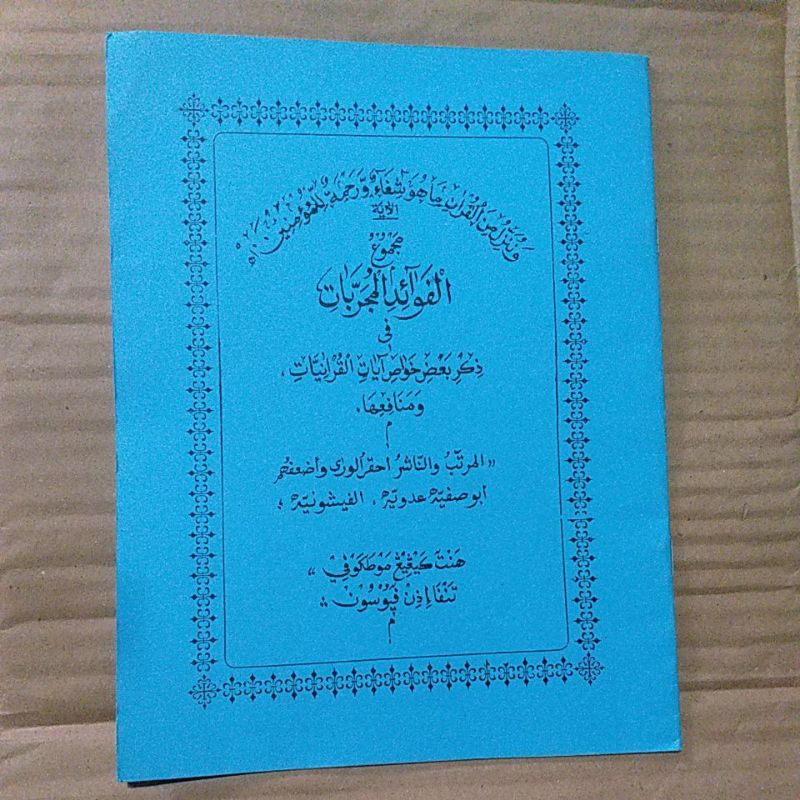 وَنُنَزِّلُ مِنَ الْقُرْاٰنِ مَا هُوَ شِفَاءٌ وَّرَحْمَةٌ لِّلْمُؤْمِنِيْنَ
الاية
مجموع
الْفَوَآئِدِ الْمُجَرَّبَاتِ
فى
ذِكْرِ بَعْضِ خَوَاصِ آيَاتِ الْقُرْانِيَّاتِ ،
وَمَنَافِعِهَا.
م
« المرتّبُ والنّاشرُ أحقر الورى وأضعفهم
أبو صفيه عدويه ، الفيشونيه ؛
هَنْتَ كَيْڠِيڠْ مَوْطَكَوْفِي «
تَنْفَا إِذِنْ ڤَيُوْسُوْن «
م